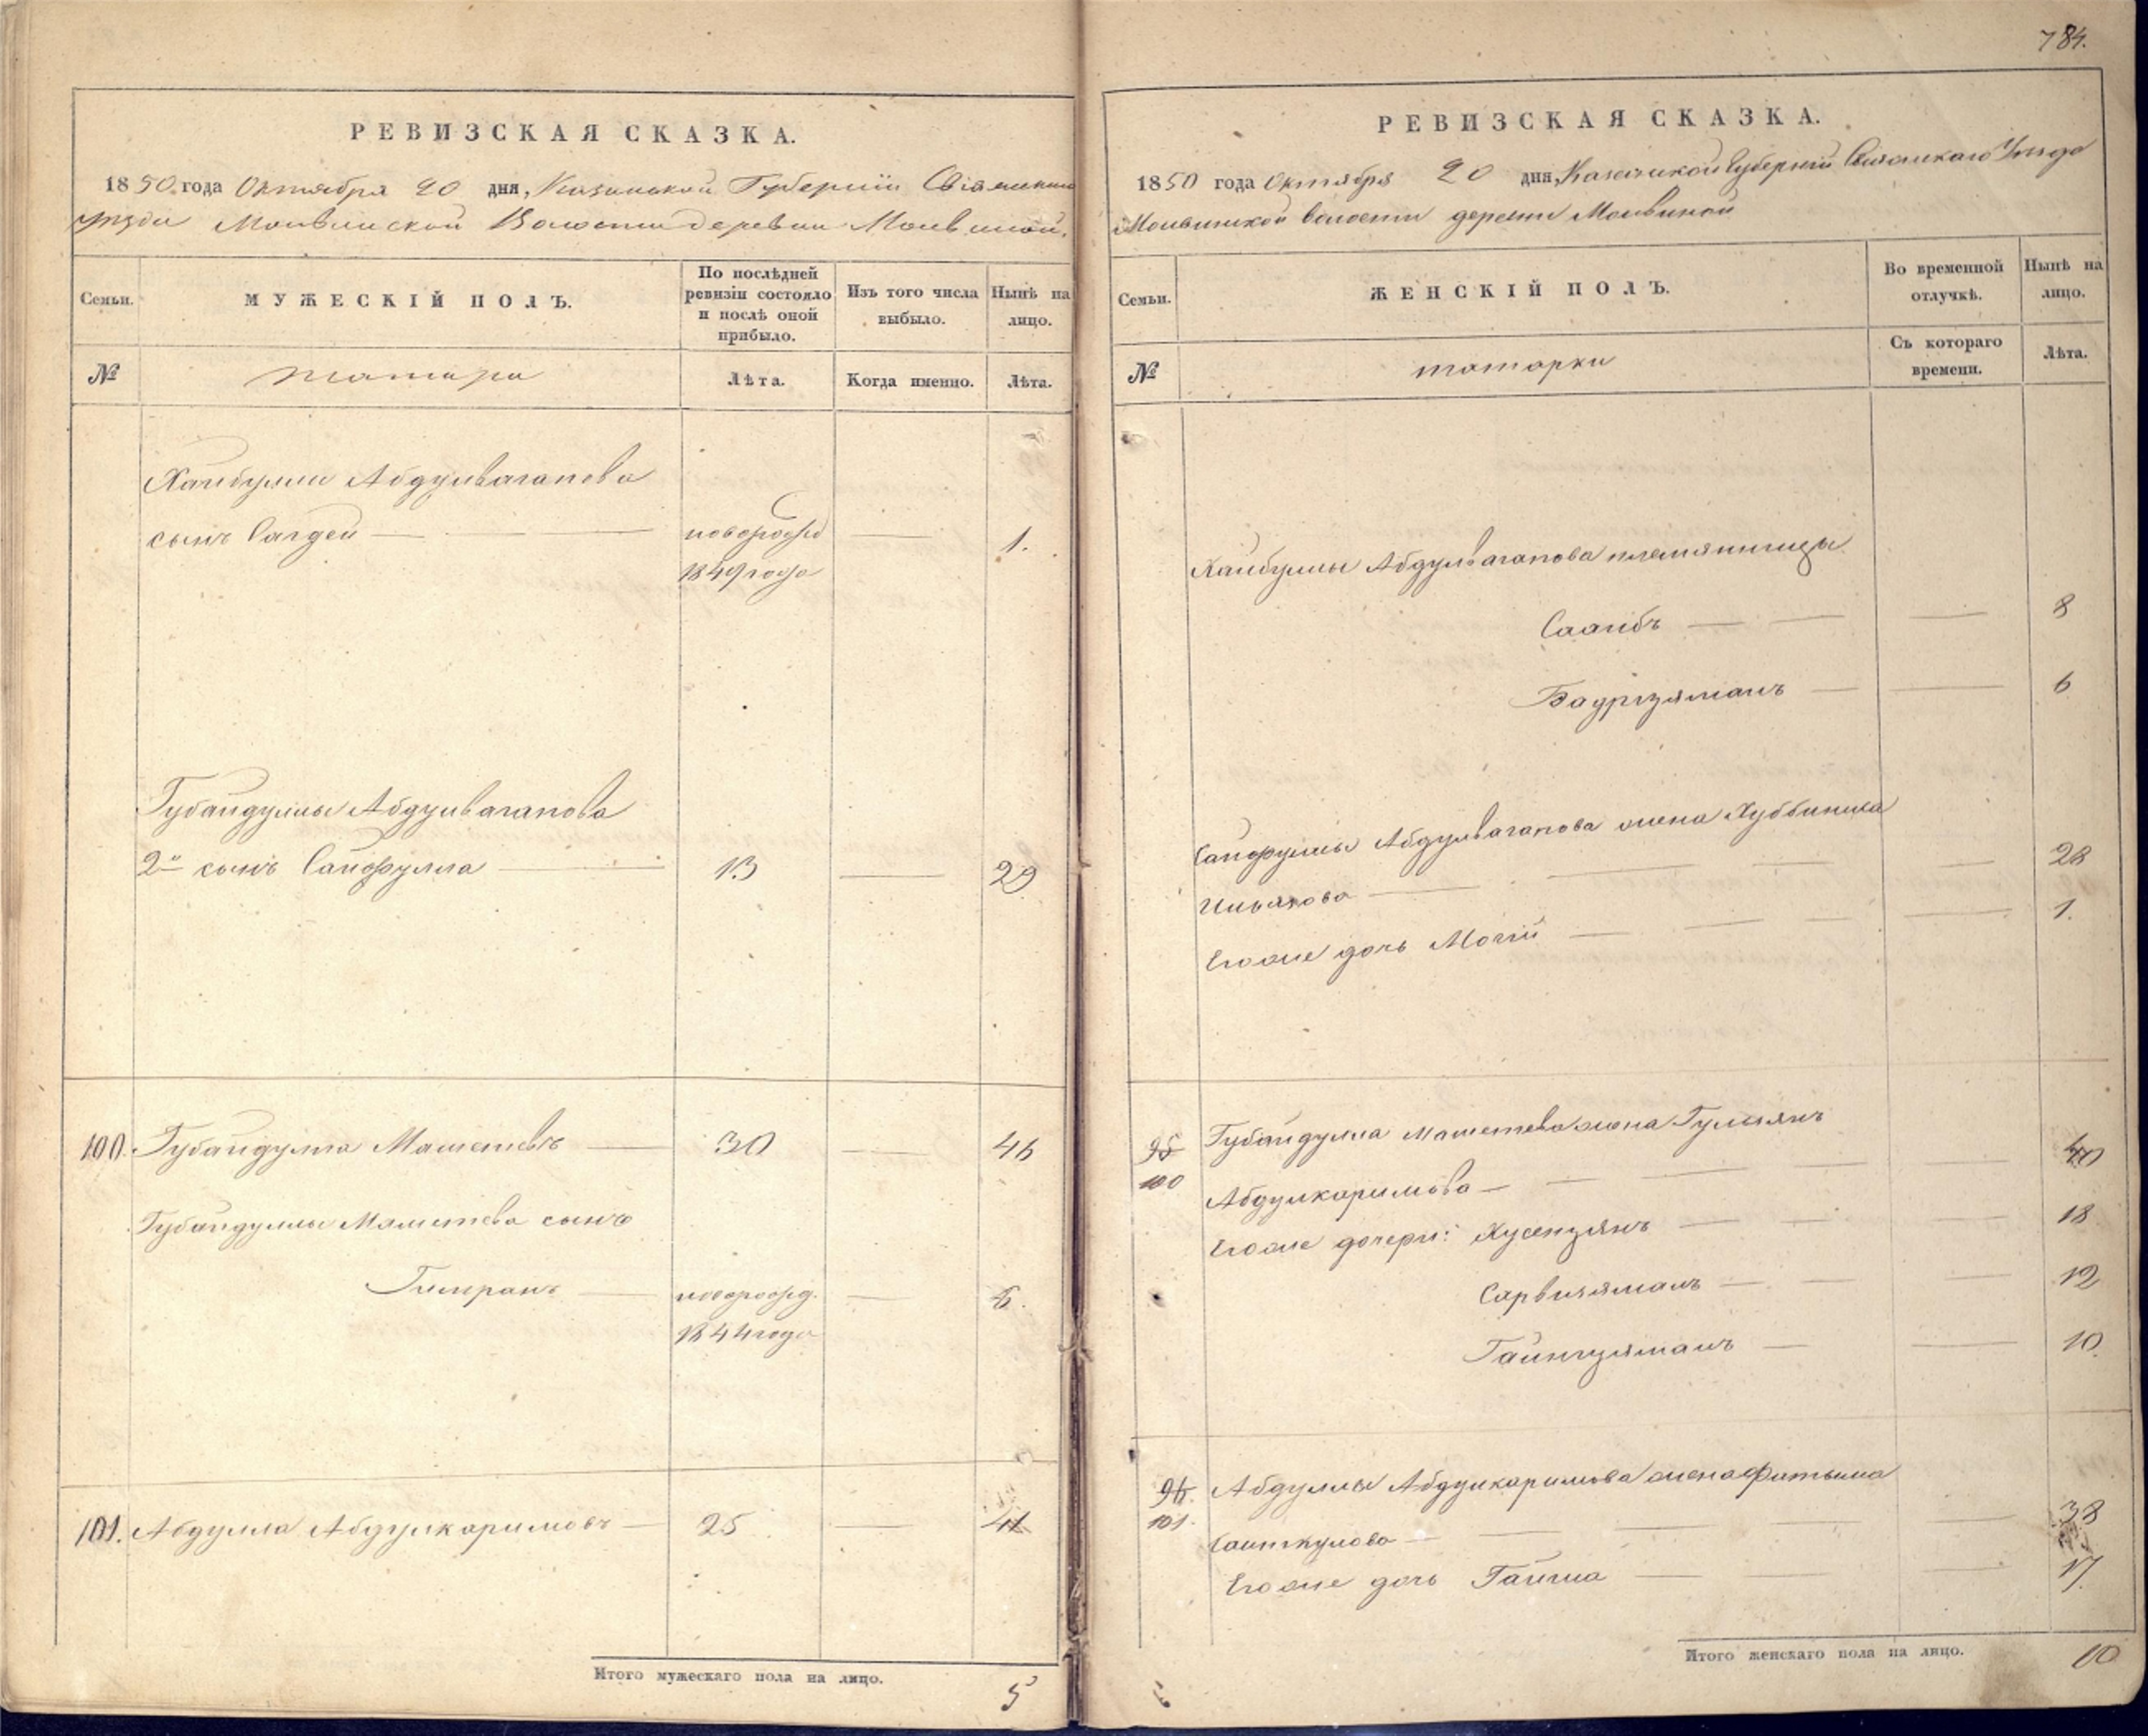 784.
РЕВИЗСКАЯ СКАЗКА.
1850 года Октября 20 дня, Казанской Губернiи Свiяжскаго
Уѣзда Молвинской Волости деревни Молвиной.
Семьи.
МУЖЕСКIЙ ПОЛЪ.
По послѣдней ревизiи состояло и послѣ оной прибыло.
Изъ того числа выбыло.
Нынѣ на лицо.
№
татары
Лѣта.
Когда именно.
Лѣта.
Хайбуллы Абдулвагапова
сынъ Сагдей — новорожд 1849 года — 1.
Губайдуллы Абдулвагапова
2й сынъ Сайфулла — 13 — 29
100. Губайдулла Маметевъ — 30 — 46
Губайдуллы Маметева сынъ
новорожд. 1844 года — 6.
101. Абдулла Абдулкаримовъ — 25 — 41
Итого мужескаго пола на лицо. 5
РЕВИЗСКАЯ СКАЗКА.
1850 года Октября 20 дня, Казанской Губернiи Свiяжскаго Уѣзда
Молвинской волости деревни Молвиной
Семьи.
ЖЕНСКIЙ ПОЛЪ.
Во временной отлучкѣ.
Нынѣ на лицо.
№
татарки
Съ котораго времени.
Лѣта.
Хайбуллы Абдулвагапова племянницы
Сааибъ — — 8
Бадризяманъ — — 6
Сайфуллы Абдулвагапова жена Хуббиниса
Ильясова — — 28
Егоже дочь Могiй — — 1.
95 Губайдулла Маметева жена Гульжянъ
100 Абдулкаримова — — 40
Егоже дочери: Хусензянъ — — 18
Сарвизяманъ — — 12
Гайнизяманъ — — 10.
96. Абдуллы Абдулкаримова жена Фатыма
101. Саиткулова — — 38
Егоже дочь Гайша — — 17.
Итого женскаго пола на лицо. 10